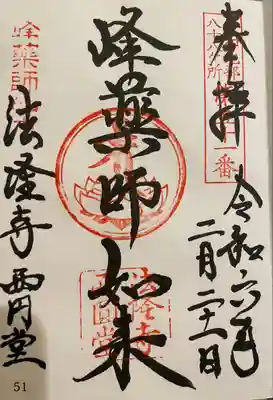 奉拝
八十八ヶ所
番
令和六年
二月二十一日
峰薬師如来
法隆寺
西円堂
峰薬師
法隆寺西円堂
51